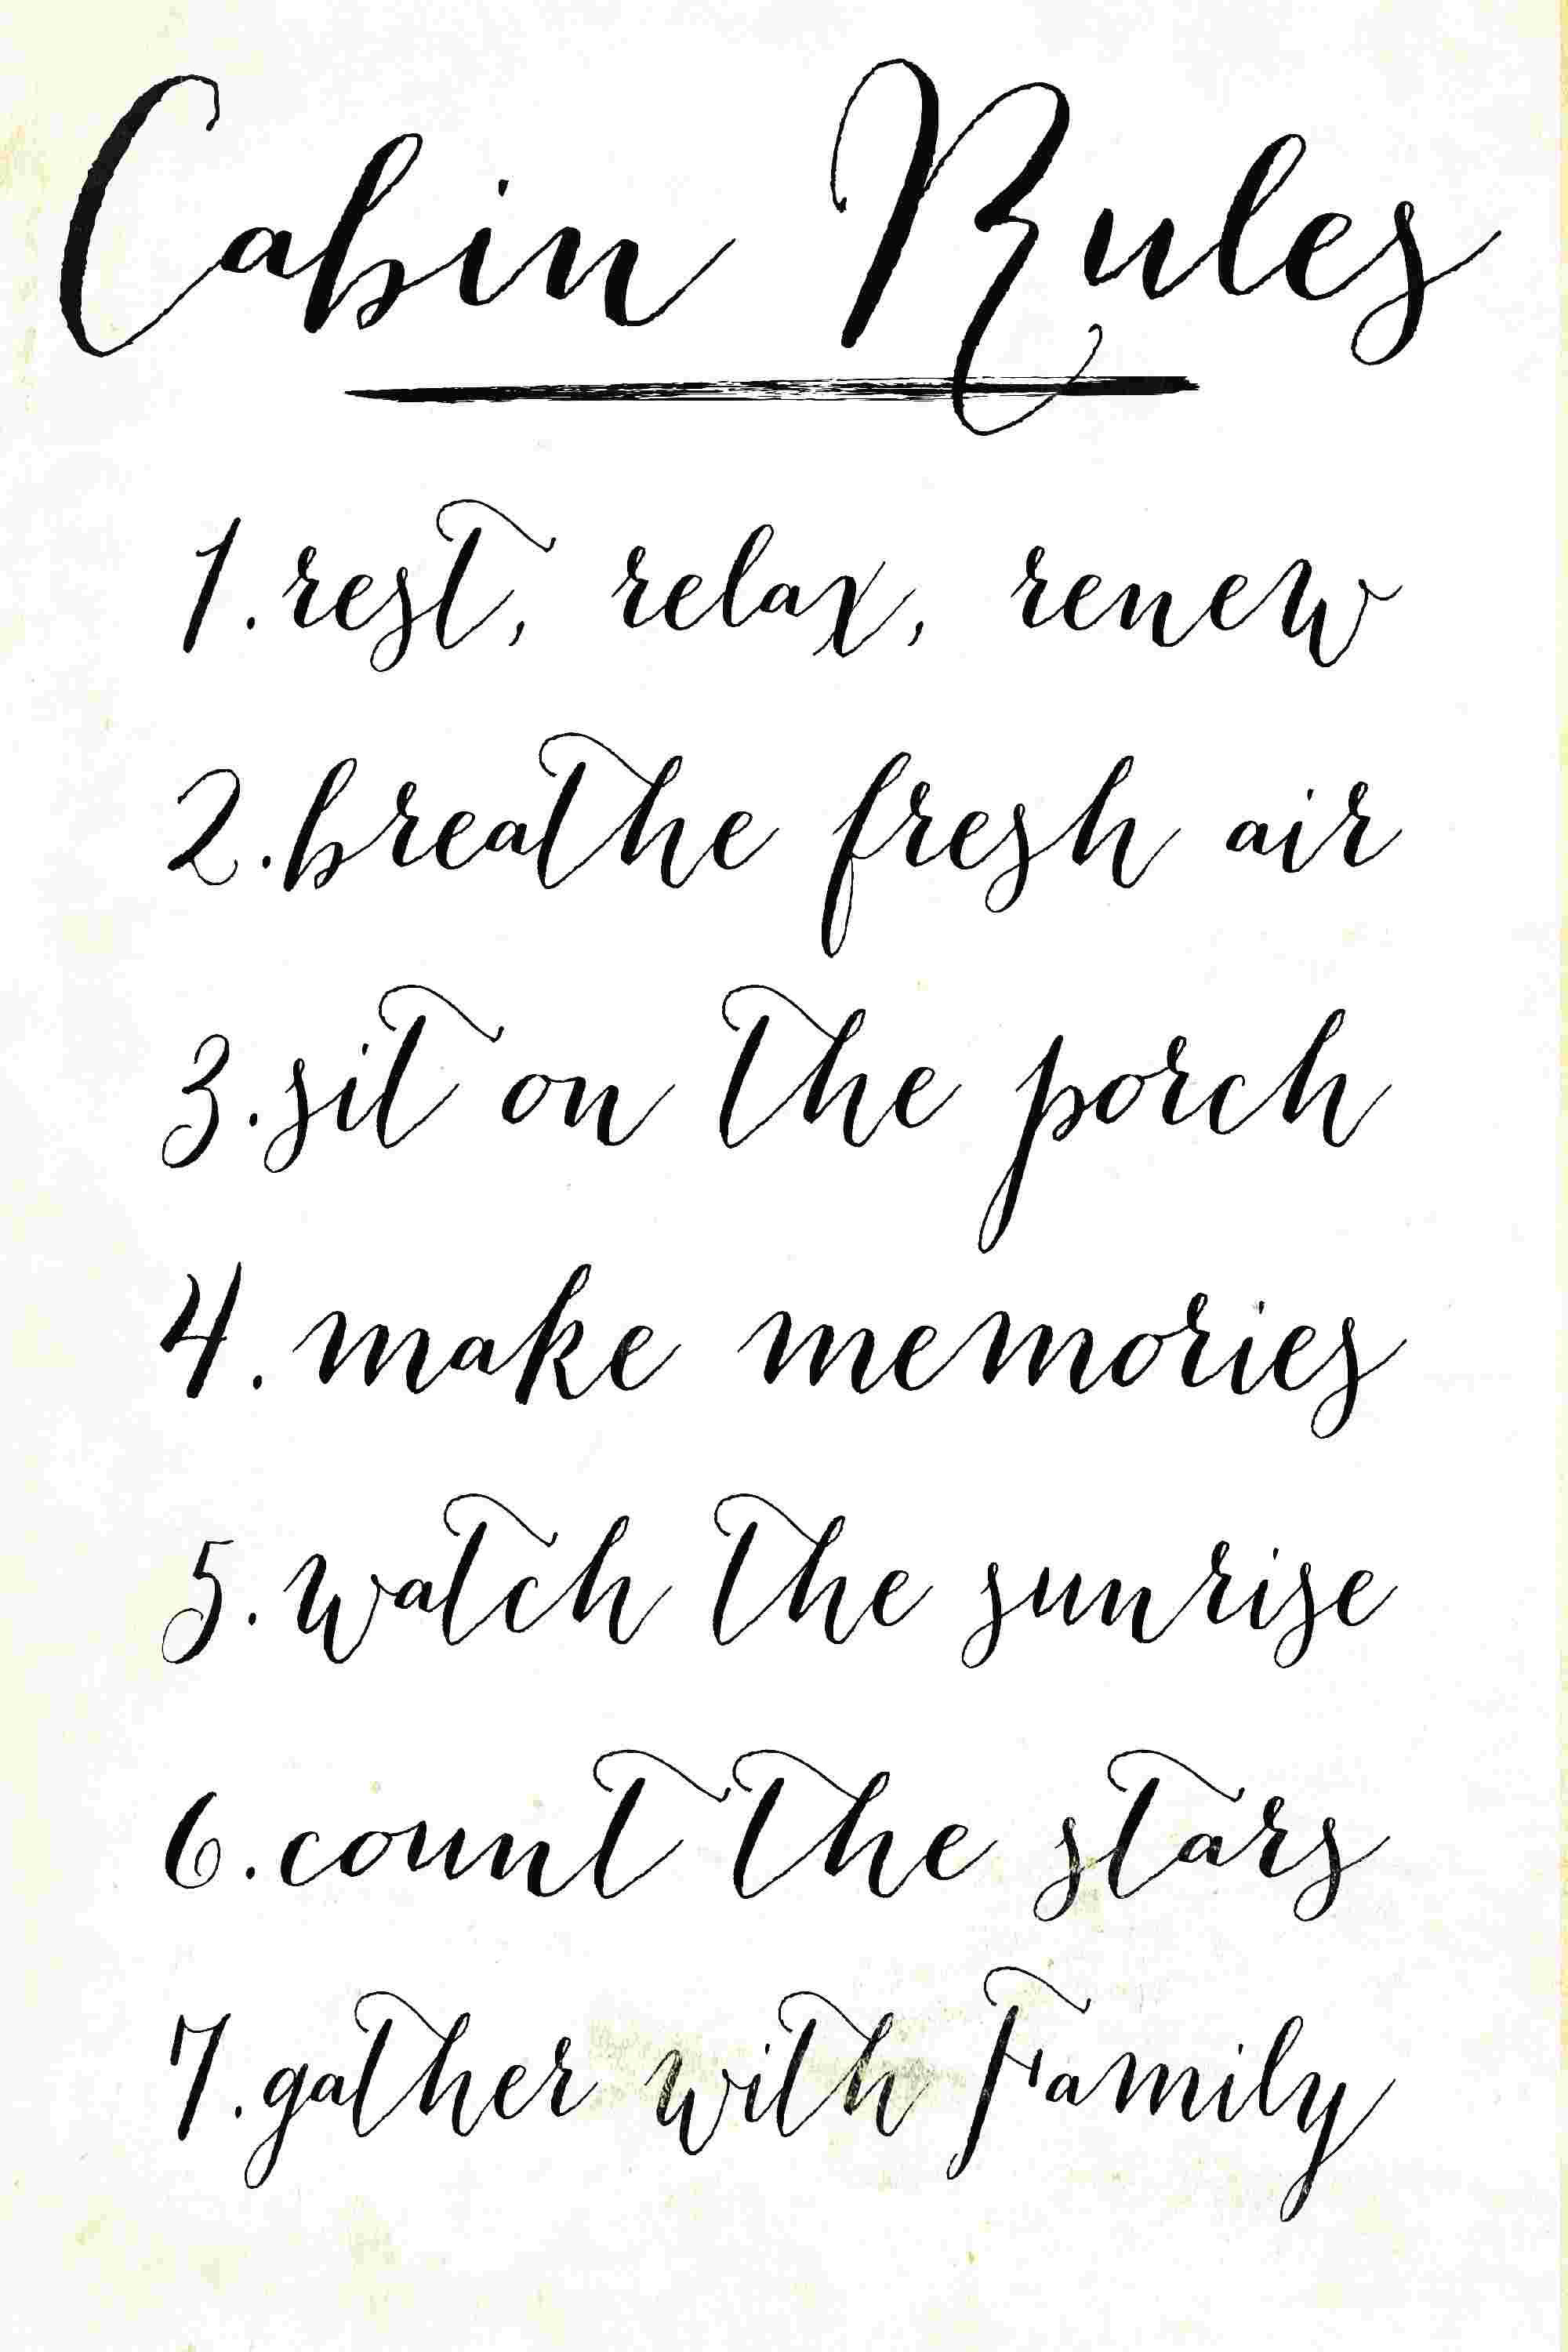 Cabin Rules
1. rest, relax, renew
2. breathe fresh air
3. sit on the porch
4. make memories
5. watch the sunrise
6. count the stars
7. gather with Family